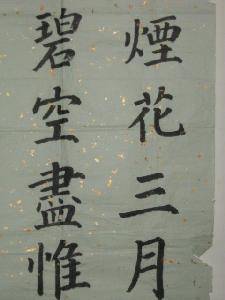 煙花三月
碧空盡惟